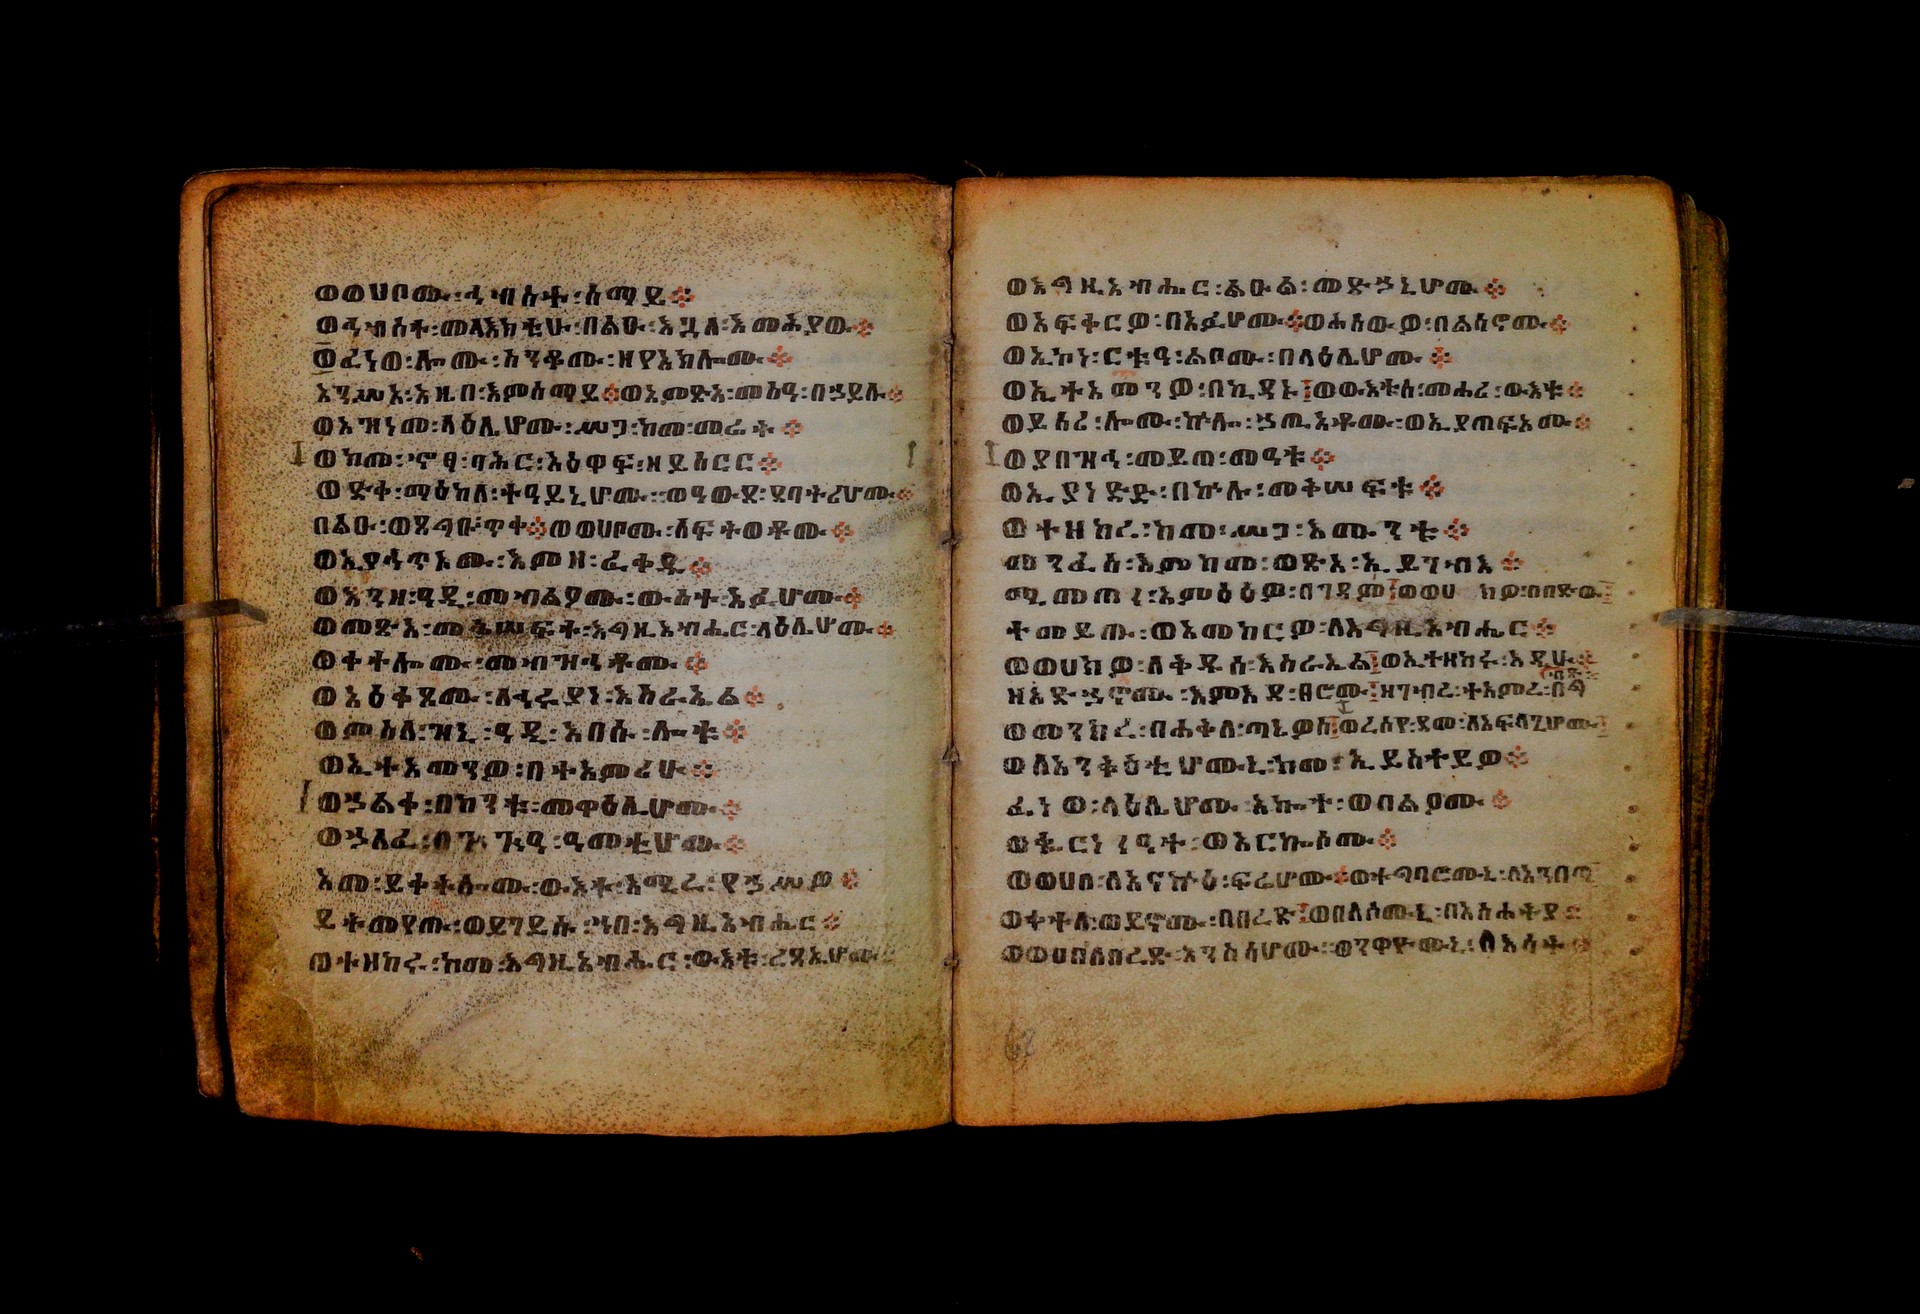 ወወሀቦሙ፡ኅብስተ፡ሰማይ።
ወኅብስተ፡መላእክቲሁ፡በልዑ፡እጓለ፡እመሕያው።
ወፈነወ፡ሎሙ፡ስንቆሙ፡ዘየአክሎሙ።
አንሥአ፡አዜበ፡እምሰማይ።ወአምጽአ፡መስዓ፡በኀይሉ።
ወአዝነመ፡ላዕሌሆሙ፡ሥጋ፡ከመ፡መሬት።
ወከመ፡ኆፃ፡ባሕር፡አዕዋፍ፡ዘይሰርር።
ወድቀ፡ማዕከለ፡ተዓይኒሆሙ፡ወዓውደ፡ደባትሪሆሙ።
በልዑ፡ወጸግቡ፡ጥቀ።ወወሀቦሙ፡ለፍትወቶሙ።
ወኢያኅጥኦሙ፡እምዘ፡ፈቀዱ።
ወእንዘ፡ዓዲ፡መብልዖሙ፡ውስተ፡አፉሆሙ።
ወመጽአ፡መቅሠፍተ፡እግዚአብሔር፡ላዕሌሆሙ።
ወቀተሎሙ፡መብዝኅቶሙ።
ወአዕቀጾሙ፡ለኅሩያነ፡እስራኤል።
ወምስለ፡ዝኒ፡ዓዲ፡አበሱ፡ሎቱ።
ወኢተአመንዎ፡በተአምሪሁ።
ወኀልቀ፡በከንቱ፡መዋዕሊሆሙ።
ወኀለፈ፡በጕጕዓ፡ዓመቲሆሙ።
አመ፡ይቀትሎሙ፡ውእተ፡አሚረ፡የኀሥሥዎ።
ይትመየጡ፡ወይገይሱ፡ኀበ፡እግዚአብሔር።
ወተዘከሩ፡ከመ፡እግዚአብሔር፡ውእቱ፡ረዳኢሆሙ።
ወእግዚአብሔር፡ልዑል፡መድኀኒሆሙ።
ወአፍቀርዎ፡በአፉሆሙ።ወሐሰውዎ፡በልሳኖሙ።
ወኢኮነ፡ርቱዓ፡ልቦሙ፡በላዕሌሆሙ።
ወኢተአመንዎ፡በኪዳኑ።ወውእቱሰ፡መሐሪ፡ውእቱ።
ወይሰሪ፡ሎሙ፡ኵሎ፡ኀጢአቶሙ፡ወኢያጠፍኦሙ።
ወያበዝኅ፡መይጠ፡መዓቱ።
ወኢያነድድ፡በኵሉ፡መቅሠፍቱ።
ወተዘከረ፡ከመ፡ሥጋ፡እሙንቱ።
መንፈስ፡እምከመ፡ወጽአ፡ኢይገብእ።
ሚመጠነ፡አምዕዕዎ፡በገዳም።ወወሀከዎ፡በበድው።
ተመይጡ፡ወአመከርዎ፡ለእግዚአብሔር።
ወወሀክዎ፡ለቅዱሰ፡እስራኤል።ወኢተዘከሩ፡እዴሁ።
ዘአድኀኖሙ፡እምእደ፡ፀሮሙ።ዘገብረ፡ተአምረ፡በግብጽ።
ወመንክረ፡በሐቅለ፡ጣኔዎስ።ወረሰየ፡ደመ፡ለአፍላጊሆሙ።
ወለአንቅዕቲሆሙኒ፡ከመ፡ኢይስተይዎ።
ፈነወ፡ላዕሌሆሙ፡አኮተ፡ወበልዖሙ።
ወቈርነነዓተ፡ወአርኰሶሙ።
ወወሀበ፡ለአናኵዕ፡ፍሬሆሙ።ወተግባሮሙኒ፡ለአንበጣ
ወቀተለ፡ወይኖሙ፡በበረድ።ወበለሶሙኒ፡በአስሐትያ።
ወወሀበ፡ለበረድ፡እንስሳሆሙ፡ወንዋዮሙኒ፡ለእሳት።